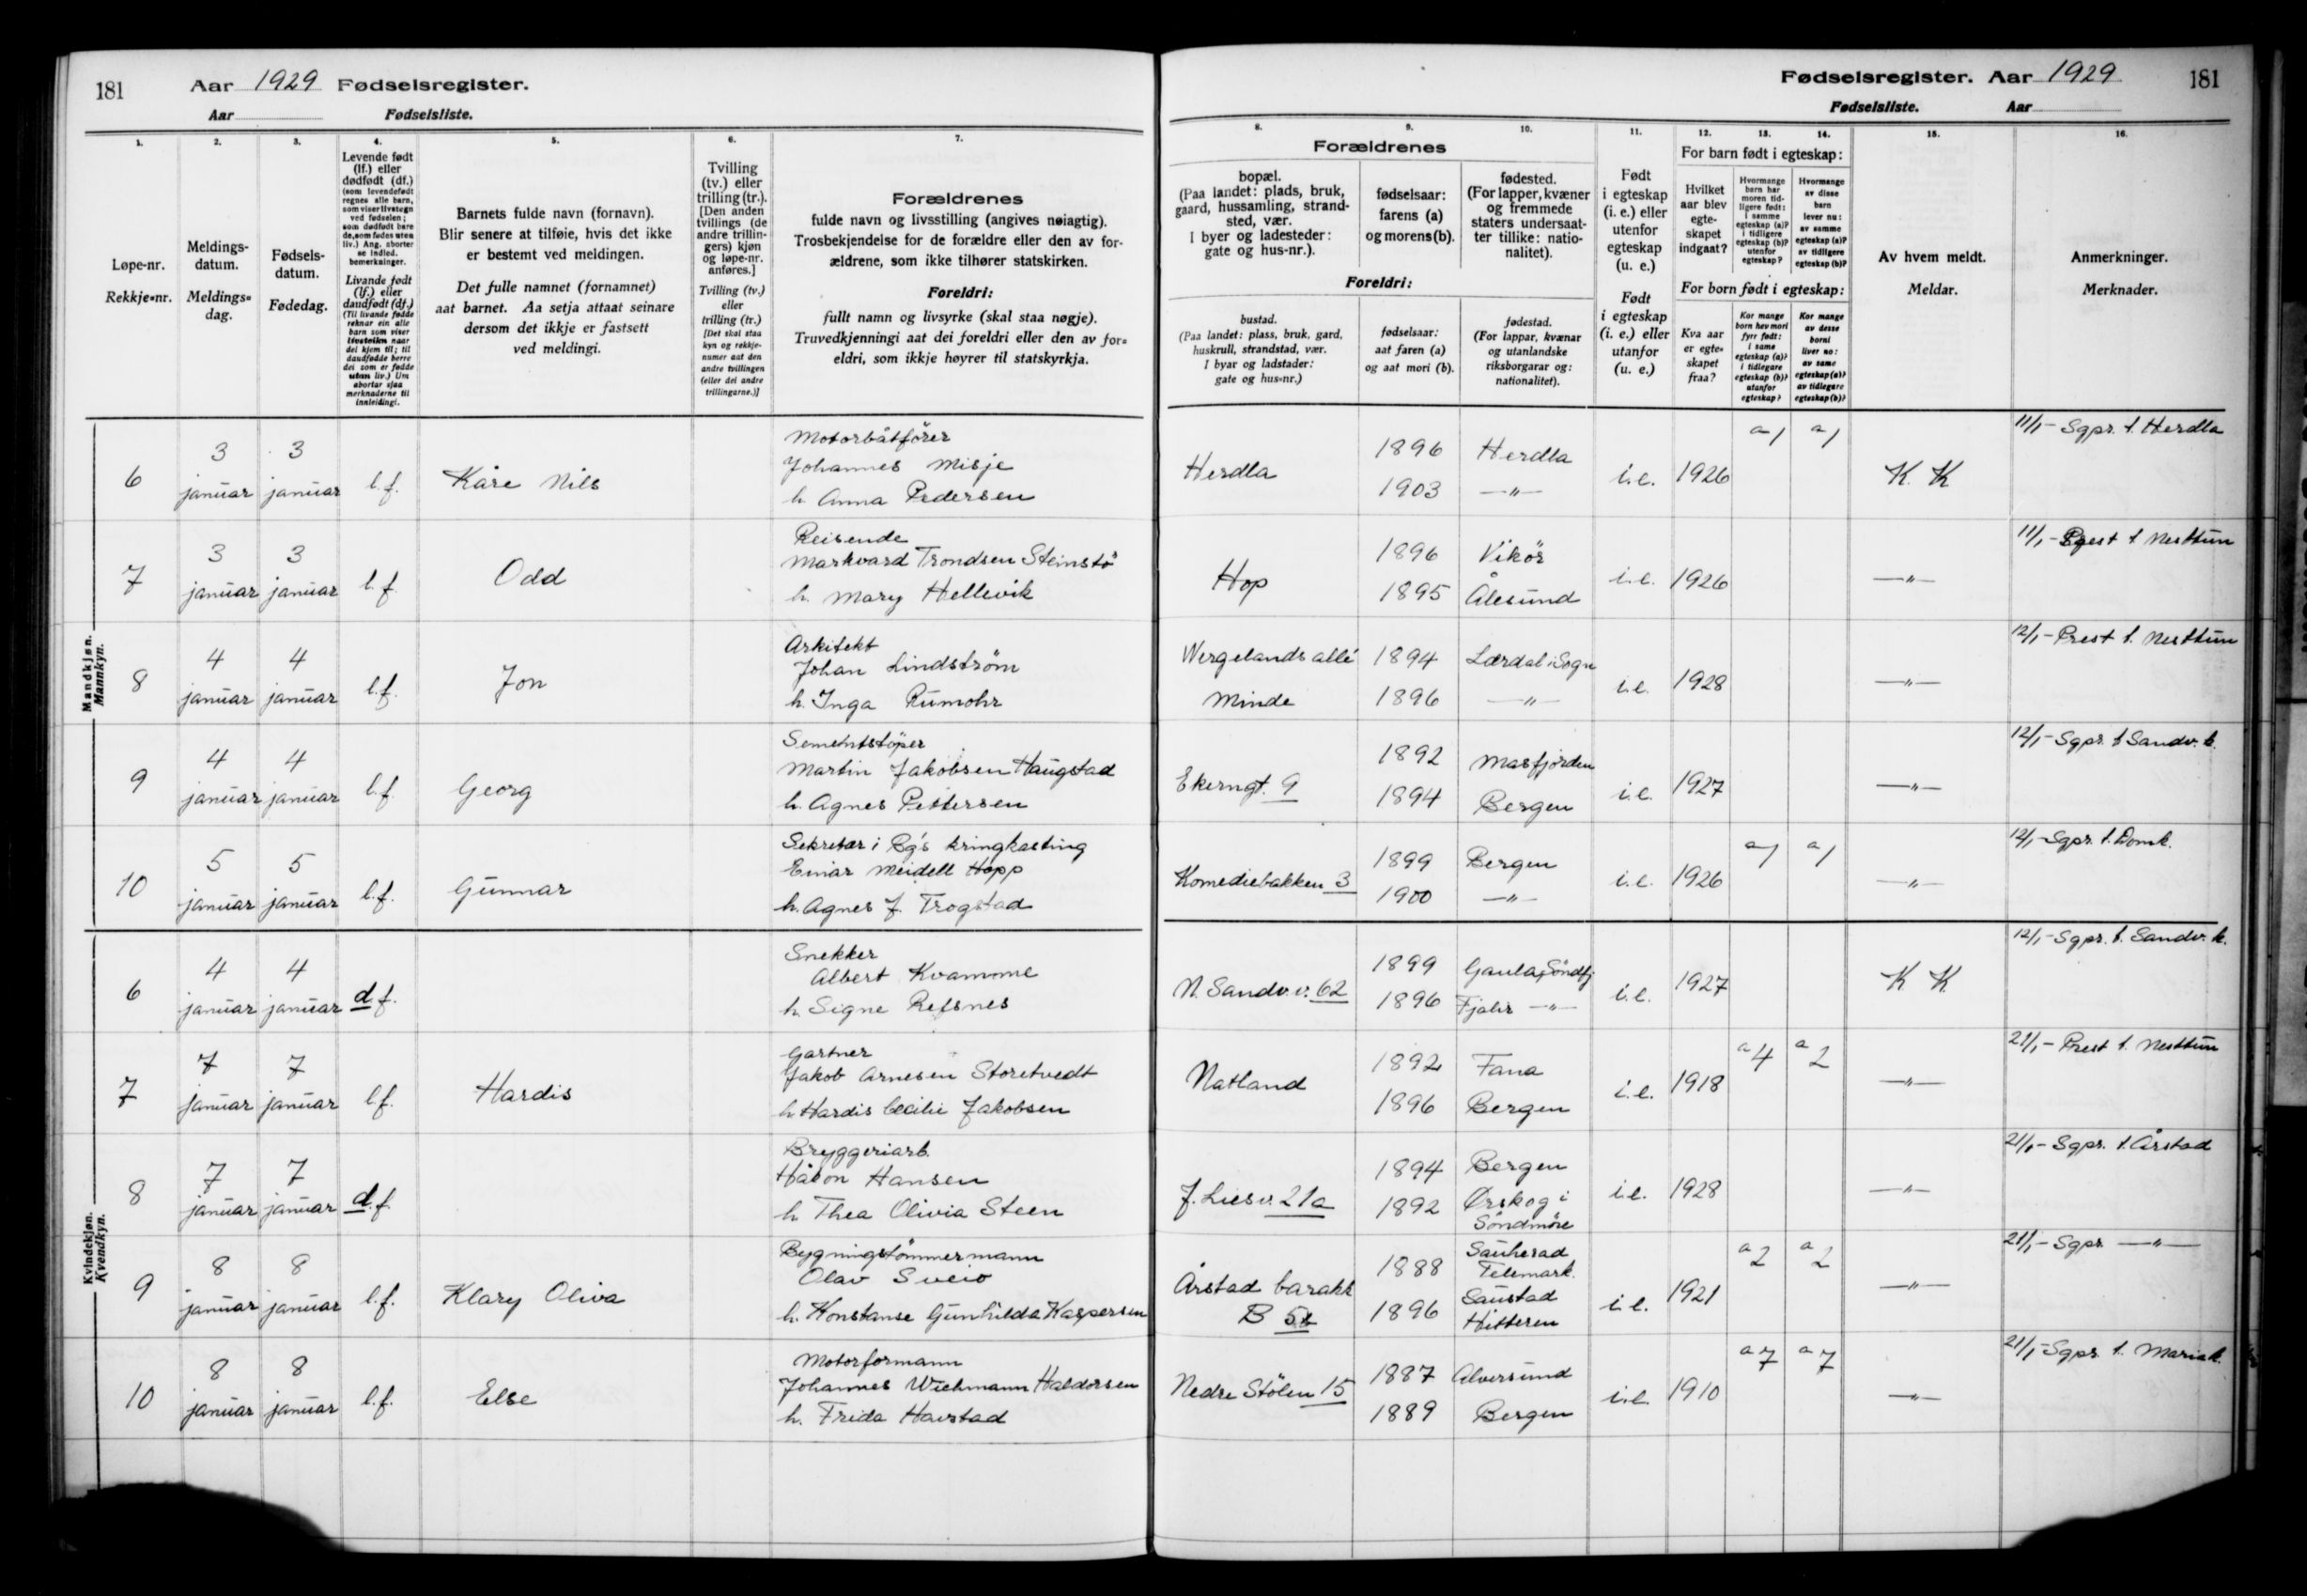 181 Aar 1929 Fødselsregister.
Aar Fødselsliste.
Fødselsregister. Aar 1929 181
Fødselsliste. Aar
1. 2. 3. 4. 5. 6. 7.
Løpe-nr.
Rekkje=nr.
Meldings-
datum.
Meldings=
dag.
Fødsels-
datum.
Fødedag.
Levende født
(lf.) eller
dødfødt (df.)
(som levendefødt
regnes alle barn,
som viser livstegn
ved fødselen;
som dødfødt bare
de, som fødes uten
liv.) Ang. aborter
se indled.
bemerkninger.
Livande født
(lf.) eller
daudfødt (df.)
(Til livande fødde
reknar ein alle
barn som viser
livsteikn naar
dei kjem til; til
daudfødde berre
dei som er fødde
utan liv.) Um
abortar sjaa
merknaderne til
innleidingi.
Barnets fulde navn (fornavn).
Blir senere at tilføie, hvis det ikke
er bestemt ved meldingen.
Det fulle namnet (fornamnet)
aat barnet. Aa setja attaat seinare
dersom det ikkje er fastsett
ved meldingi.
Tvilling
(tv.) eller
trilling (tr.).
[Den anden
tvillings (de
andre trillin-
gers) kjøn
og løpe-nr.
anføres.]
Tvilling (tv.)
eller
trilling (tr.)
[Det skal staa
kyn og rekkje-
numer aat den
andre tvillingen
(eller dei andre
trillingarne.)]
Forældrenes
fulde navn og livsstilling (angives nøiagtig).
Trosbekjendelse for de forældre eller den av for-
ældrene, som ikke tilhører statskirken.
Foreldri:
fullt namn og livsyrke (skal staa nøgje).
Truvedkjenningi aat dei foreldri eller den av for=
eldri, som ikkje høyrer til statskyrkja.
8. 9. 10. 11. 12. 13. 14. 15. 16.
Forældrenes
bopæl.
(Paa landet: plads, bruk,
gaard, hussamling, strand-
sted, vær.
I byer og ladesteder:
gate og hus-nr.).
fødselsaar:
farens (a)
og morens (b).
fødested.
(For lapper, kvæner
og fremmede
staters undersaat-
ter tillike: natio-
nalitet).
Foreldri:
bustad.
(Paa landet: plass, bruk, gard,
huskrull, strandstad, vær.
I byar og ladstader:
gate og hus=nr.)
fødselsaar:
aat faren (a)
og aat mori (b).
fødestad.
(For lappar, kvænar
og utanlandske
riksborgarar og:
nationalitet).
Født
i egteskap
(i. e.) eller
utenfor
egteskap
(u. e.)
Født
i egteskap
(i. e.) eller
utanfor
(u. e.)
For barn født i egteskap:
Hvilket
aar blev
egte-
skapet
indgaat?
Hvormange
barn har
moren tid-
ligere født:
i samme
egteskap (a)?
i tidligere
egteskap (b)?
utenfor
egteskap?
Hvormange
av disse
barn
lever nu:
av samme
egteskap (a)?
av tidligere
egteskap (b)?
For born født i egteskap:
Kva aar
er egte=
skapet
fraa?
Kor mange
born hev mori
fyrr født:
i same
egteskap (a)?
i tidlegare
egteskap (b)?
utanfor
egteskap?
Kor mange
av desse
borni
liver no:
av same
egteskap (a)?
av tidlegare
egteskap (b)?
Av hvem meldt.
Meldar.
Anmerkninger.
Merknader.
Mandkjøn.
Mannkyn.
6 3 januar 3 januar l.f. Kåre Nils
Motorbåtfører
Johannes Misje
h. Anna Pedersen
Herdla 1896 Herdla
1903 —"—
i.e. 1926 a 1 a 1 K. K 11/1- Sgpr. t. Herdla
7 3 januar 3 januar l.f. Odd
Reisende
Markvard Trondsen Steinstö
h. Mary Hellevik
Hop 1896 Vikör
1895 Ålesund
i.e. 1926 —"— 11/1- Prest t. Nesttun
8 4 januar 4 januar l.f. Jon
Arkitekt
Johan Lindstrøm
h. Inga Rumohr
Wergelands allé
Minde
1894 Lærdal i Sogn
1896 —"—
i.e. 1928 —"— 12/1- Prest t. Nesttun
9 4 januar 4 januar l.f. Georg
Sementstöper
Martin Jakobsen Haugstad
h. Agnes Pettersen
Ekerngt. 9 1892 Masfjorden
1894 Bergen
i.e. 1927 —"— 12/1- Sgpr. t Sandv. k.
10 5 januar 5 januar l.f. Gunnar
Sekretær i Bg's kringkasting
Einar Meidell Hopp
h. Agnes J. Trogstad
Komediebakken 3 1899 Bergen
1900 —"—
i.e. 1926 a 1 a 1 —"— 12/1- Sgpr. t. Domk.
Kvindekjøn.
Kvendkyn.
6 4 januar 4 januar d.f.
Snekker
Albert Kvamme
h. Signe Refsnes
N. Sandv.v. 62 1899 Gaula, Söndfj
1896 Fjaler —"—
i.e. 1927 K K 12/1- Sgpr. t. Sandv. k.
7 7 januar 7 januar l.f. Hardis
Gartner
Jakob Arnesen Storetvedt
h. Hardis Cecilie Jakobsen
Natland 1892 Fana
1896 Bergen
i.e. 1918 a 4 a 2 —"— 21/1- Prest t. Nesttun
8 7 januar 7 januar d.f.
Bryggeriarb.
Håkon Hansen
h. Thea Olivia Steen
J. Liesv. 21a 1894 Bergen
1892 Ørskog i
Söndmöre
i.e. 1928 —"— 21/1- Sgpr. t. Årstad
9 8 januar 8 januar l.f. Klary Oliva
Bygningstömmermann
Olav Sveio
h. Konstanse Gunhilda Kaspersen
Årstad barakk
B
1888 Sauherad
Telemark.
1896 Saustad
Hitteren
i.e. 1921 a 2 a 2 —"— 21/1- Sgpr —"—
10 8 januar 8 januar l.f. Else
Motorformann
Johannes Wichmann Haldorsen
h. Frida Havstad
Nedre Stölen 15 1887 Alversund
1889 Bergen
i.e. 1910 a 7 a 7 —"— 21/1- Sgpr. t. Mariak.